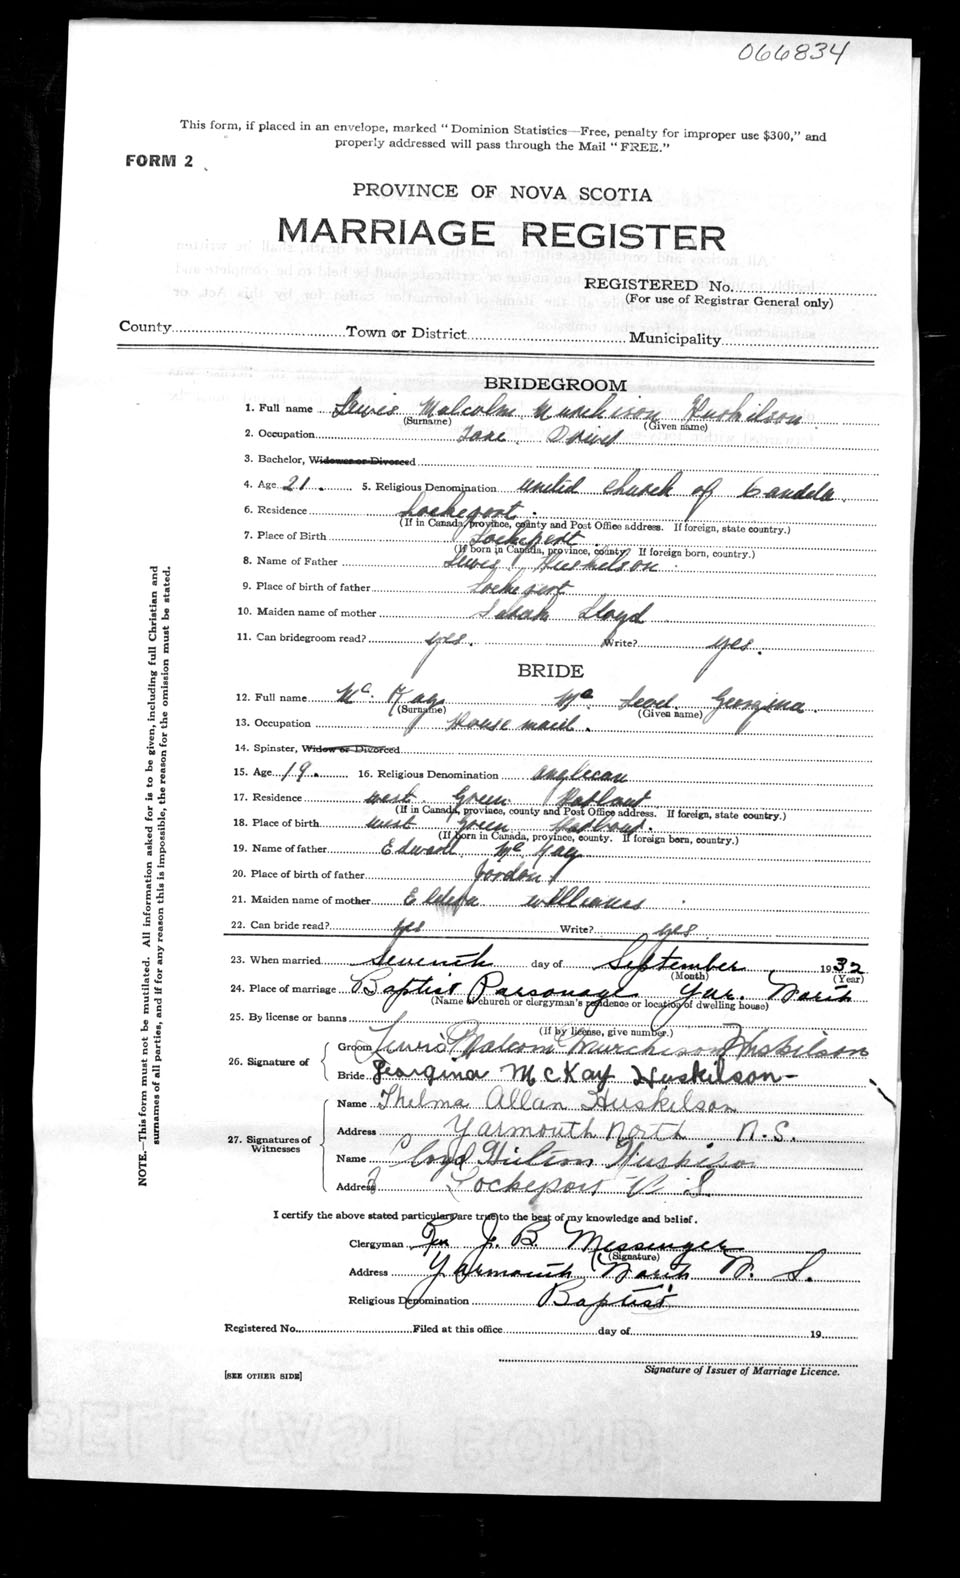 066834
This form, if placed in an envelope, marked "Dominion Statistics—Free, penalty for improper use $300," and
properly addressed will pass through the Mail "FREE."
FORM 2
PROVINCE OF NOVA SCOTIA
MARRIAGE REGISTER
REGISTERED No.
(For use of Registrar General only)
County Town or District Municipality
BRIDEGROOM
1. Full name Lewis Malcolm Murchison Huskilson
(Surname) (Given name)
2. Occupation Taxe Driver
3. Bachelor, Widower or Divorced
4. Age 21. 5. Religious Denomination united church of Candela.
6. Residence Lockeport.
(If in Canada, province, county and Post Office address. If foreign, state country.)
7. Place of Birth Lockeport.
(If born in Canada, province, county. If foreign born, country.)
8. Name of Father Lewis Huskelson.
9. Place of birth of father Lockeport
10. Maiden name of mother Sarah Lloyd
11. Can bridegroom read? yes. Write? yes.
BRIDE
12. Full name Mc Kay Mc Leod Georgina.
(Surname) (Given name)
13. Occupation House maid.
14. Spinster, Widow or Divorced
15. Age 19. 16. Religious Denomination anglecan
17. Residence west Green Harbour
(If in Canada, province, county and Post Office address. If foreign, state country.)
18. Place of birth west Green Harbour.
(If born in Canada, province, county. If foreign born, country.)
19. Name of father Edward Mc Kay
20. Place of birth of father Jordon
21. Maiden name of mother williams
22. Can bride read? yes Write? yes.
23. When married seventh day of September 1932
(Month) (Year)
24. Place of marriage Baptist Parsonage Yar. North
(Name of church or clergyman's residence or location of dwelling house)
25. By license or banns
(If by license, give number.)
26. Signature of Groom Lewis Malcom Murchison Huskilson
Bride Georgina McKay Huskilson-
27. Signatures of Witnesses
Name Thelma Allan Huskilson
Address Yarmouth North. N.S.
Name Lloyd Huskilson
Address Lockeport N. S.
I certify the above stated particulars are true to the best of my knowledge and belief.
Clergyman Rev J. B. Messenger
(Signature)
Address Yarmouth North N. S.
Religious Denomination Baptist
Registered No. Filed at this office day of 19
Signature of Issuer of Marriage Licence.
[SEE OTHER SIDE]
NOTE.—This form must not be mutilated. All information asked for is to be given, including full Christian and
surnames of all parties, and if for any reason this is impossible, the reason for the omission must be stated.